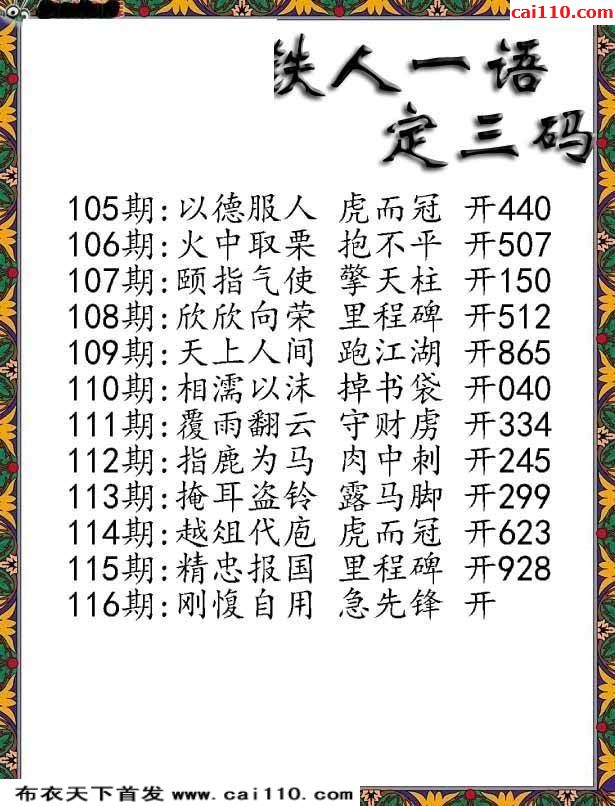 cai110.com
铁人一语
定三码
105期:以德服人 虎而冠 开440
106期:火中取栗 抱不平 开507
107期:颐指气使 擎天柱 开150
108期:欣欣向荣 里程碑 开512
109期:天上人间 跑江湖 开865
110期:相濡以沫 掉书袋 开040
111期:覆雨翻云 守财虏 开334
112期:指鹿为马 肉中刺 开245
113期:掩耳盗铃 露马脚 开299
114期:越俎代庖 虎而冠 开623
115期:精忠报国 里程碑 开928
116期:刚愎自用 急先锋 开
布衣天下首发 www.cai110.com